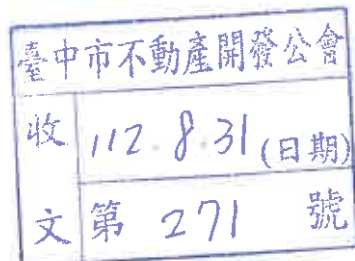 臺中市不動產開發公會
收 112.8.31(日期)
文 第 271 號